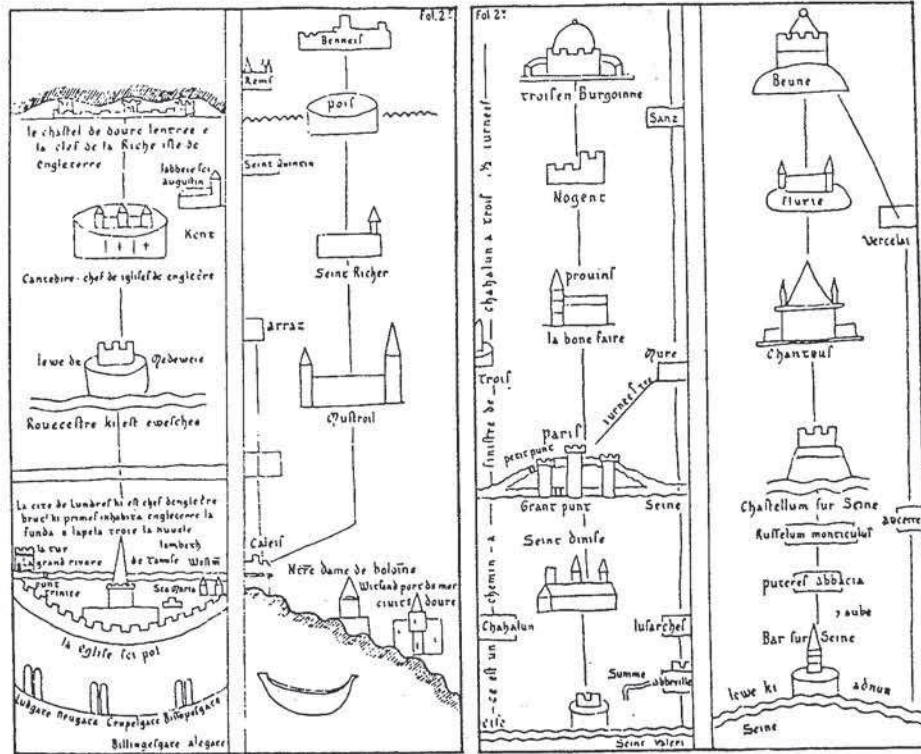 Fol. 2r
le chastel de dovre lentree e
la clef de la Riche isle de
engleterre
labbeie sci
augustin
Kent
Cantebire - chef de iglises de engletere
lewe de
Medeweie
Rouecestre ki est eveschea
La cite de Lundres ki est chef dengletere
brut ki primes inhabita engleterre la
funda e lapela troie la nuvele
la tur
grand rivere
de tamise
lambeth
Westm
punt
trinite
Sca Maria
la eglise sci pol
Ludgate Neugate Crupelgate Bissopesgate
Billingesgate alegate
Benneis
Rems
pois
Seint Quintin
Seint Richer
arraz
Mustroil
Caleis
Nere dame de boloine
Witsand port de mer
Fol 2v
troisen Burgoinne
Sanz
Nogent
prouins
la bone faire
Trois
Mure
iurnee
paris
petit punt
Grant punt
Seine
Seint dinise
Chahalun
lusarches
Summe
abbeville
Seint Valeri
ce est un chemin - a sinistre de chahalun a trois
Beune
flurie
Vercelai
Chanceus
Chastellum sur Seine
Russelum monticulus
aucerre
puteres abbacia
aube
Bar sur Seine
lewe ki
Seine